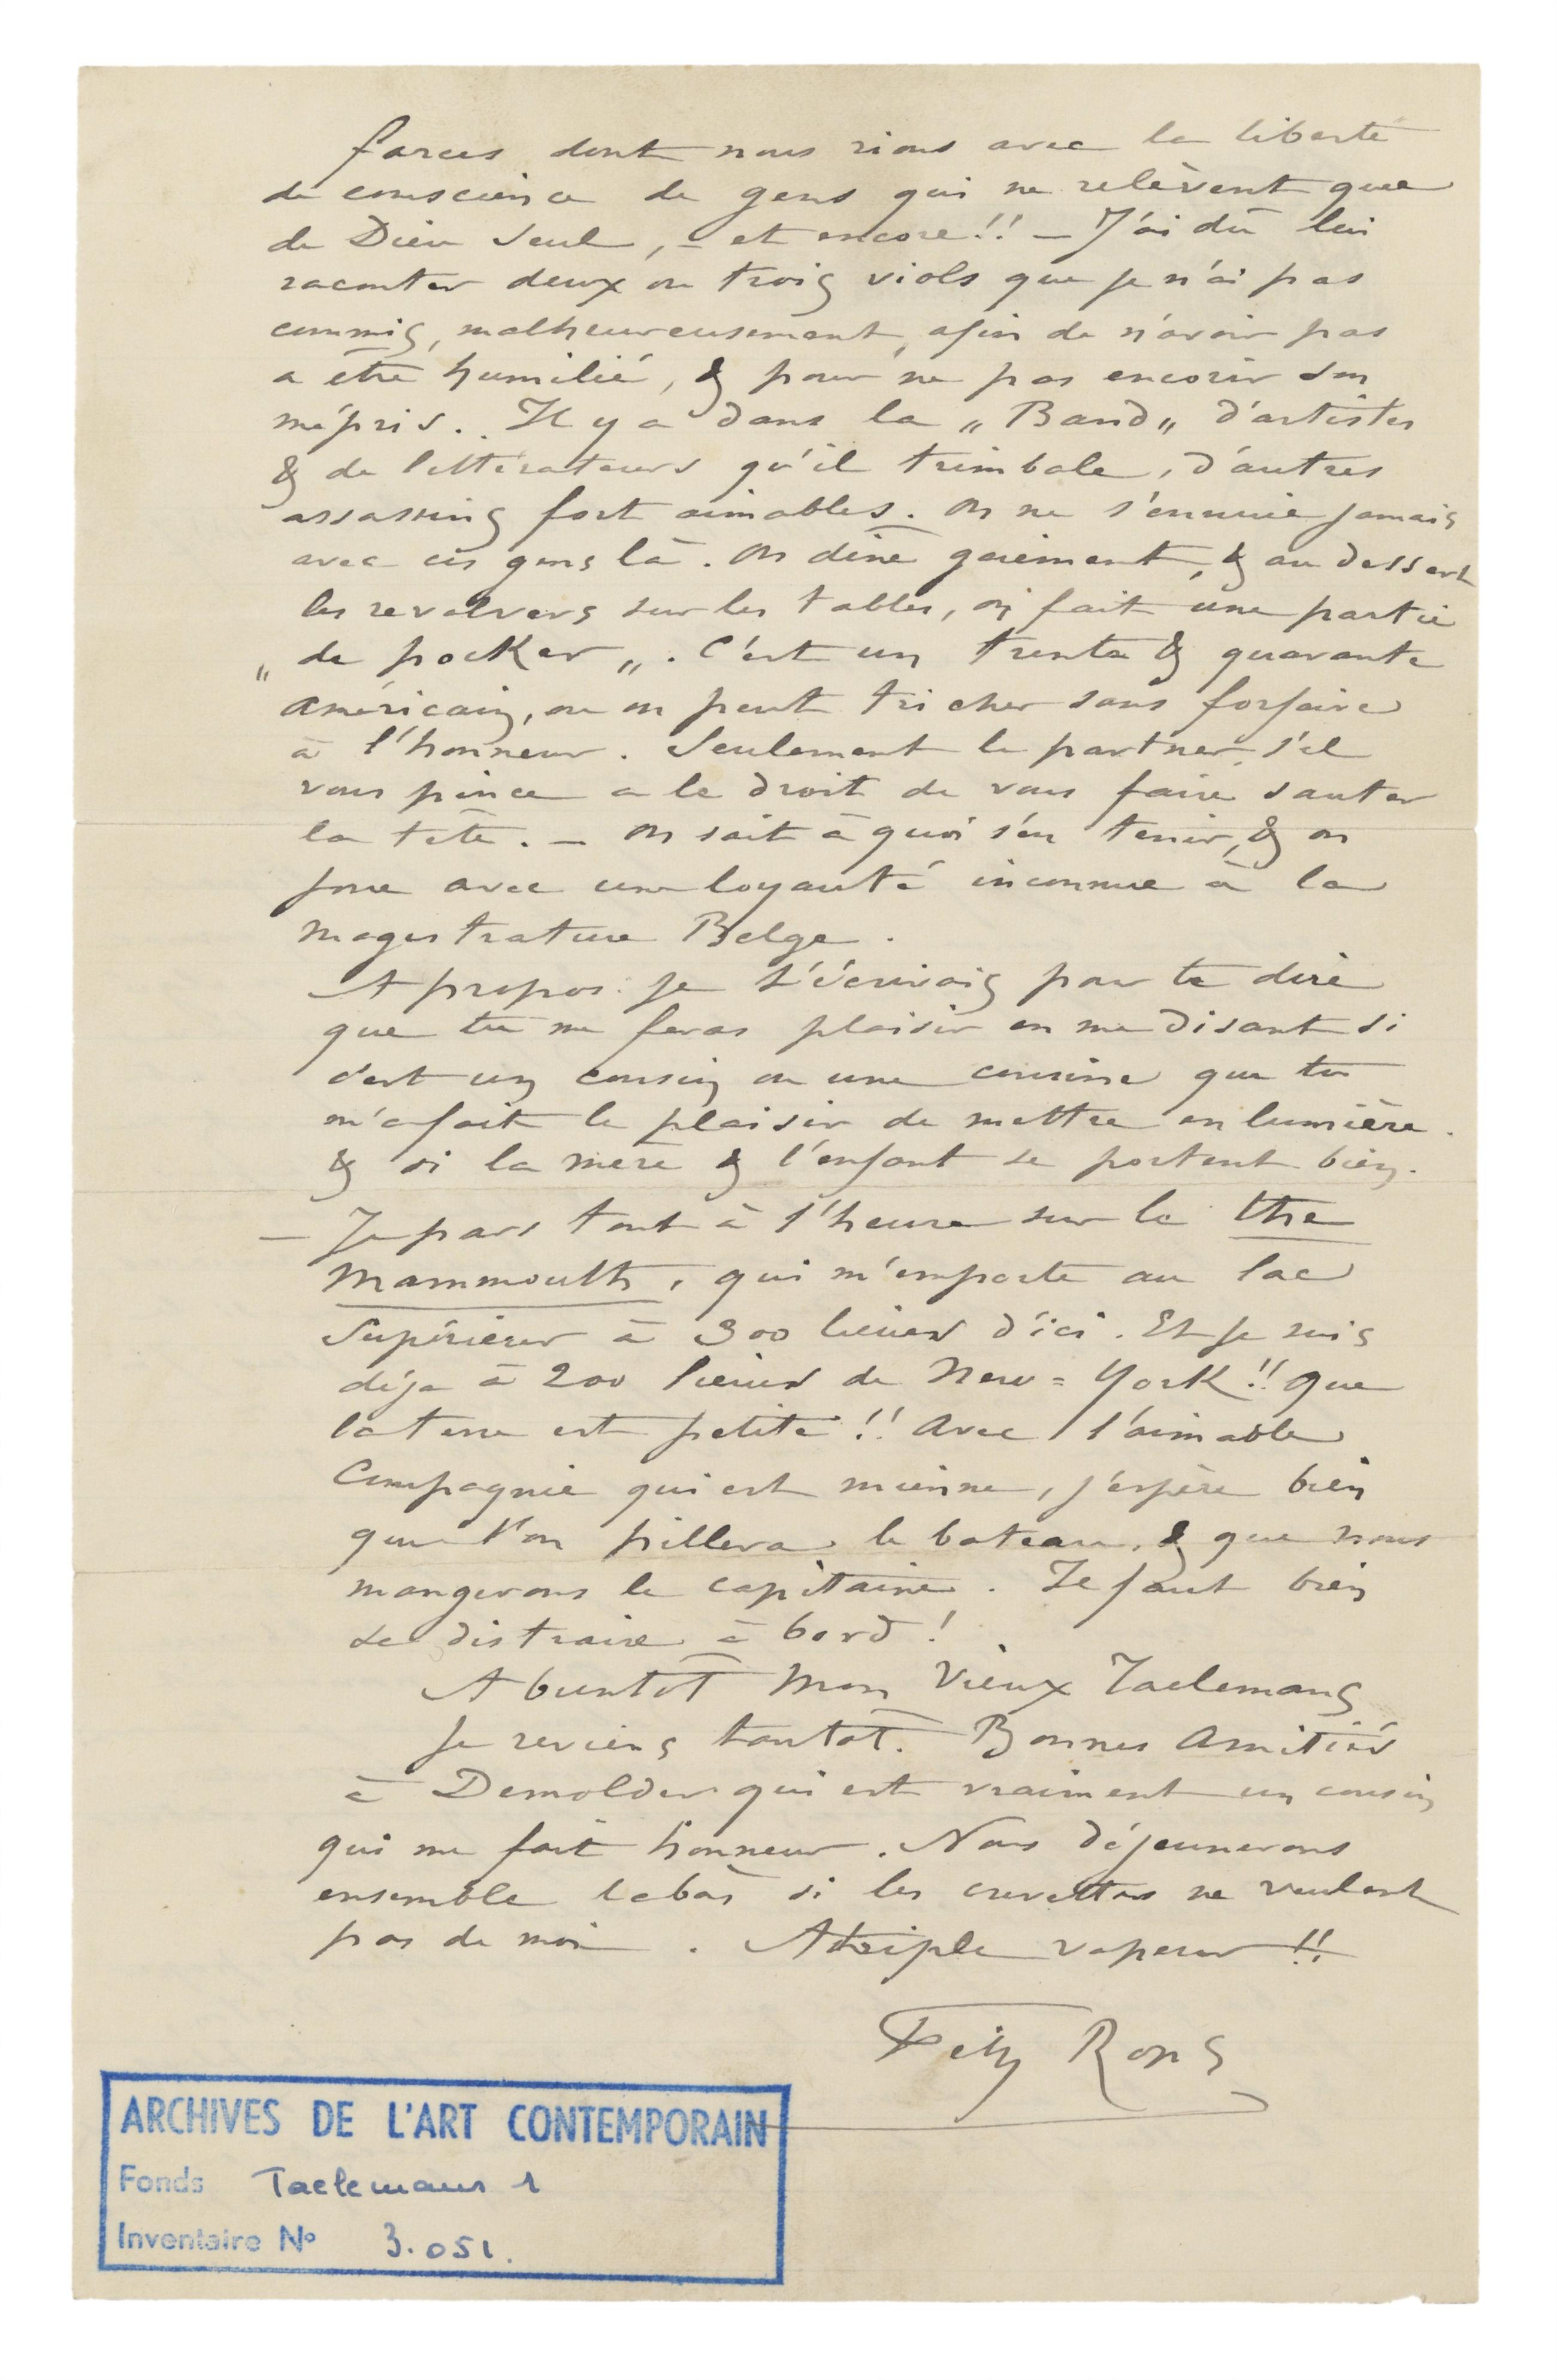 farces dont nous rions avec la liberté
de conscience de gens qui ne relèvent que
de Dieu Seul, – et encore!! – J'ai dû lui
raconter deux ou trois viols que je n'ai pas
commis, malheureusement, afin de n'avoir pas
a être humilié, & pour ne pas encorir son
mépris. Il y a dans la „ Band „ d'artistes
& de littérateurs qu'il trimbale, d'autres
assassins fort aimables. On ne s'ennuie jamais
avec ces gens là. On dîne gaiement, & au dessert
les revolvers sur les tables, on fait une partie
„ de pocker „. C'est un trente & quarante
américain, ou on peut tricher sans forfaire
à l'honneur. Seulement le partner, s'il
vous pince a le droit de vous faire sauter
la tête. – On sait à quoi s'en tenir, & on
joue avec une loyauté inconnue à la
magistrature Belge.
A propos je t'écrivais pour te dire
que tu me feras plaisir en me disant si
c'est un cousin ou une cousine que tu
m'a fait le plaisir de mettre en lumière.
& si la mère & l'enfant se portent bien.
– Je pars tout à l'heure sur le the
Mammouth, qui m'emporte au lac
Supérieur à 300 lieues d'ici. Et je suis
déja à 200 lieues de New=York!! Que
la terre est petite!! Avec l'aimable
Compagnie qui est mienne, j'espère bien
que l'on pillera le bateau, & que nous
mangerons le capitaine. Il faut bien
se distraire à bord!
A bientôt Mon Vieux Taelemans
Je reviens tantôt. Bonnes Amitiés
à Demolder qui est vraiment un cousin
qui me fait honneur. Nous déjeunerons
ensemble labàs si les crevettes ne veulent
pas de moi. A triple vapeur!!
Fély Rops
ARCHIVES DE L'ART CONTEMPORAIN
Fonds Taelemans 1
Inventaire No 3.051.